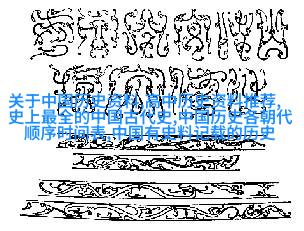 关于中国历史资料,高中历史资料推荐,
史上最全的中国古代史,中国历史各朝代
顺序时间表,中国有史料记载的历史